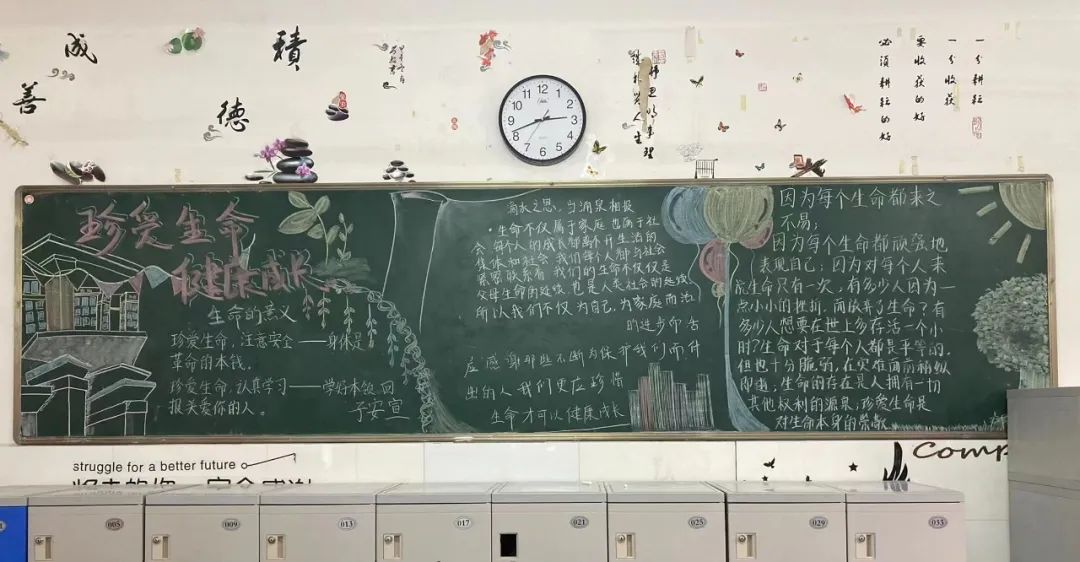 成
善
積
德
一分耕耘
一分收获
要收获的好
必须耕耘的好
12
1
2
3
4
5
6
7
8
9
10
11
珍爱生命
健康成长
生命的意义
珍爱生命，注意安全——身体是
革命的本钱。
珍爱生命，认真学习——学好本领，回
报关爱你的人。
滴水之恩，当涌泉相报
·生命不仅属于家庭也属于社
会，每个人的成长都离不开生活的
集体和社会。我们每个人都与社会
紧密联系着，我们的生命不仅仅是
父母生命的延续，也是人类社会的延续
所以我们不仅为自己，为家庭而活
的进步而活
应感谢那些不断为保护我们而付
出的人我们更应珍惜
生命才可以健康成长
因为每个生命都来之
不易；
因为每个生命都顽强地
表现自己；因为对每个人来
说生命只有一次，有多少人因为一
点小小的挫折，而放弃了生命？有
多少人想要在世上多存活一个小
时？生命对于每个人都是平等的，
但也十分脆弱，在灾难面前稍纵
即逝；生命的存在是人拥有一切
其他权利的源泉；珍爱生命是
对生命本身的崇敬
struggle for a better future
Comp
005
009
013
017
021
025
029
033